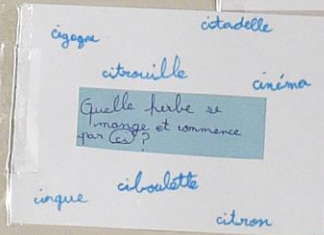 citadelle
cigogne
citrouille
cinéma
Quelle herbe se
mange et commence
par ci ?
ciboulette
cirque
citron